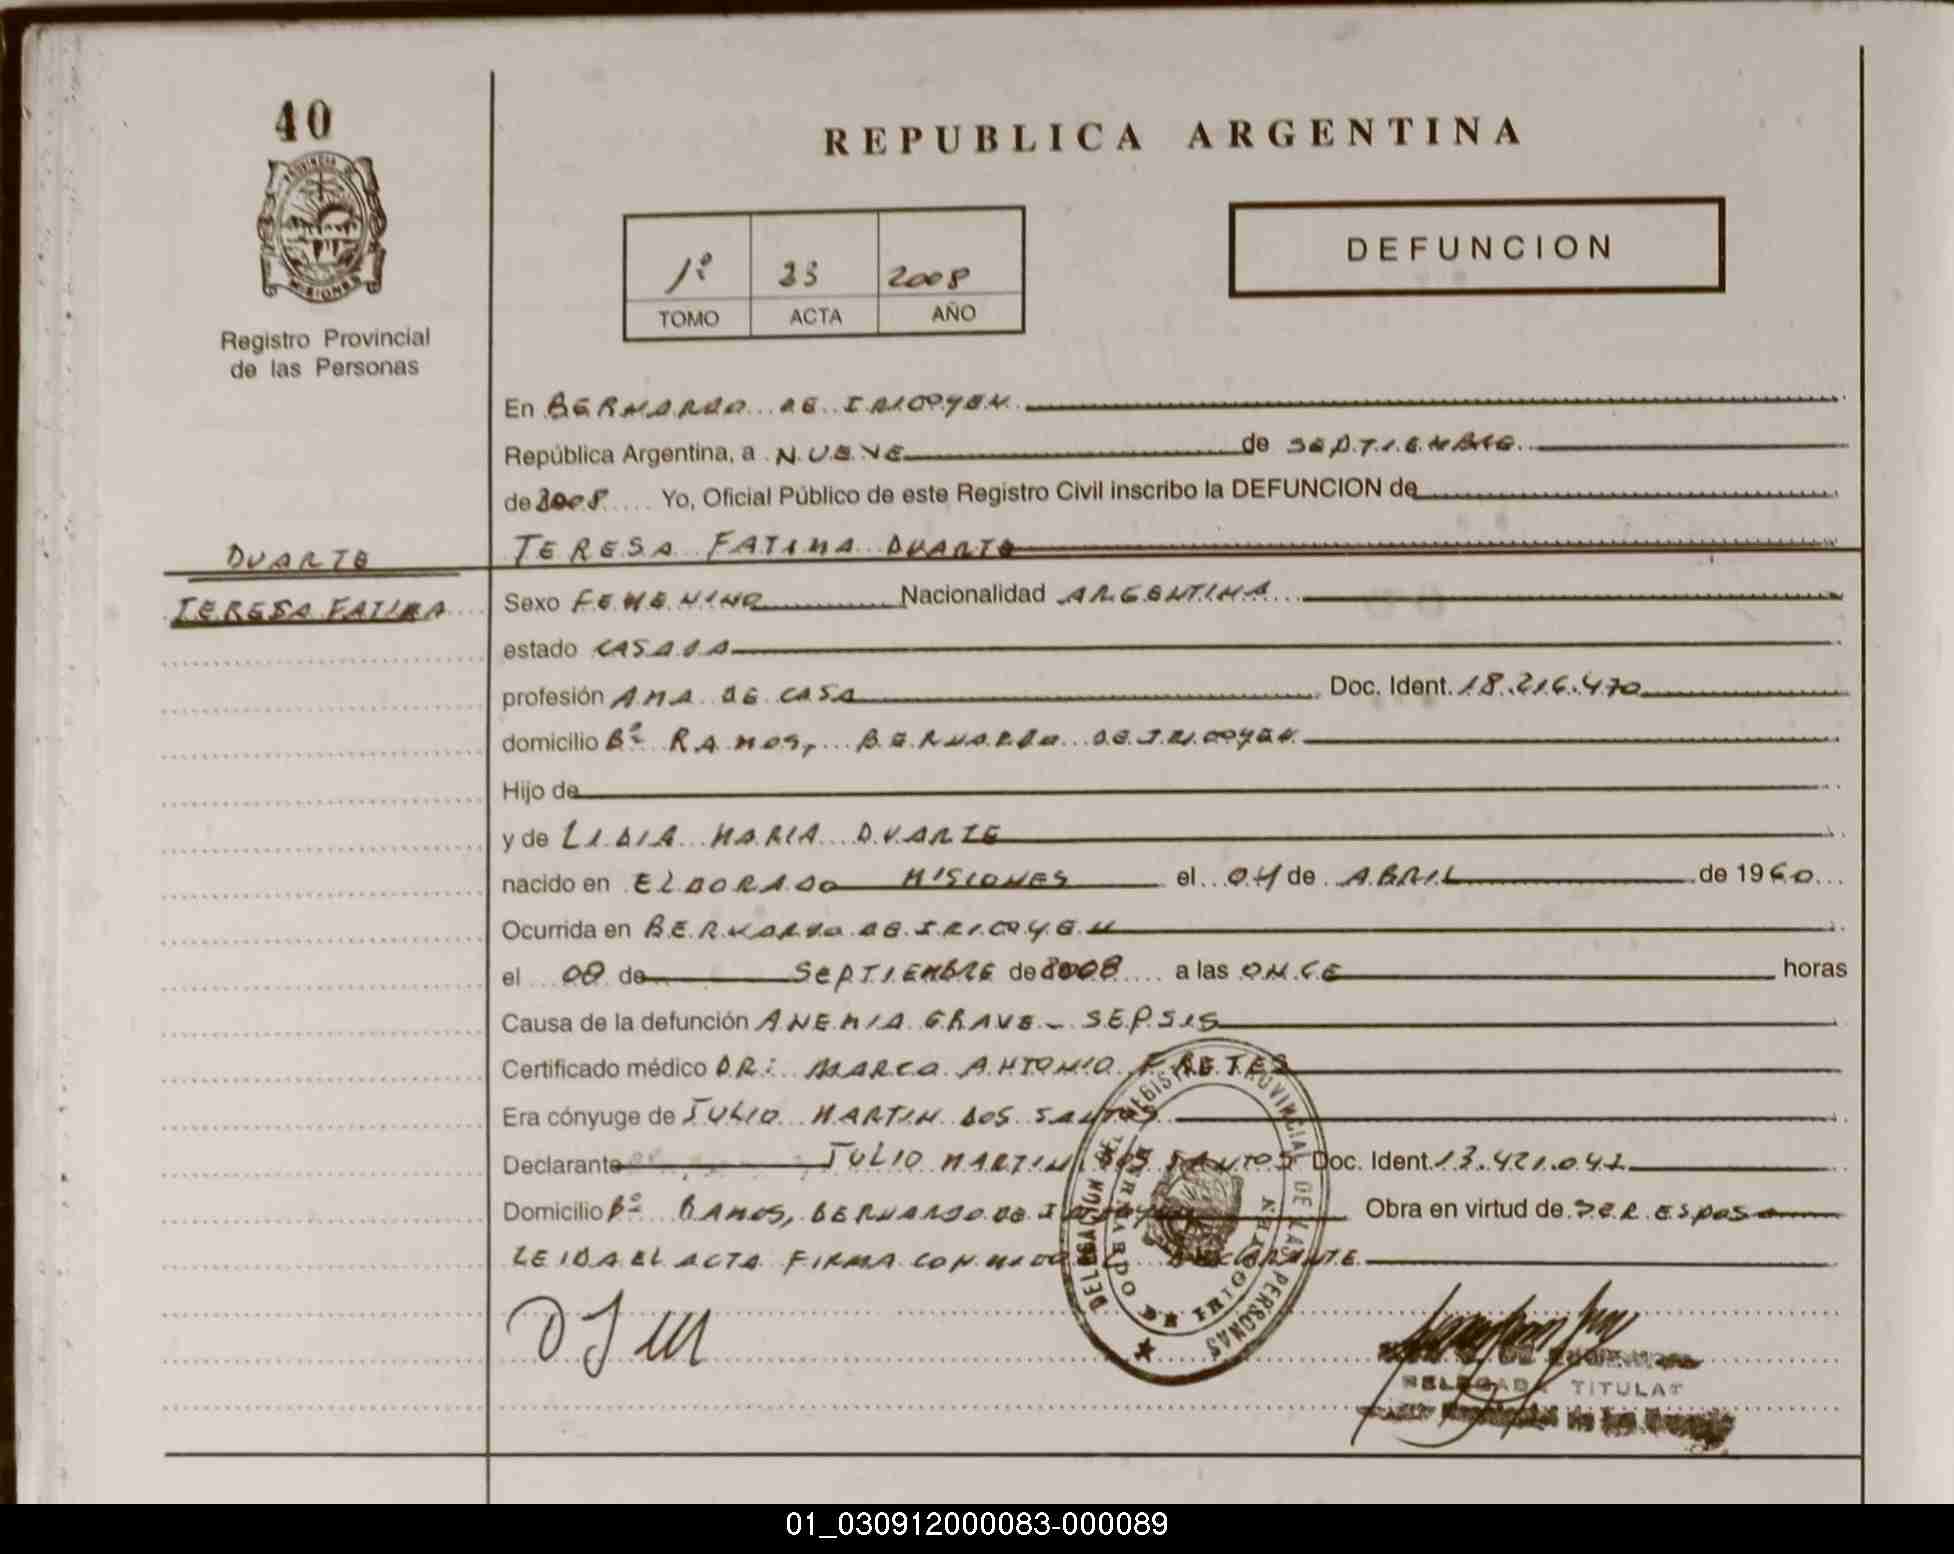 40
PROVINCIA DE
MISIONES
Registro Provincial
de las Personas
REPUBLICA ARGENTINA
1º 33 2008
TOMO ACTA AÑO
DEFUNCION
En BERNARDO DE IRIGOYEN
República Argentina, a NUEVE de SEPTIEMBRE
de 2008 Yo, Oficial Público de este Registro Civil inscribo la DEFUNCION de
TERESA FATIMA DUARTE
DUARTE
TERESA FATIMA
Sexo FEMENINO Nacionalidad ARGENTINA
estado CASADA
profesión AMA DE CASA Doc. Ident. 18.216.470
domicilio Bº RAMOS, BERNARDO DE IRIGOYEN
Hijo de
y de LIDIA MARIA DUARTE
nacido en ELDORADO MISIONES el 04 de ABRIL de 1960
Ocurrida en BERNARDO DE IRIGOYEN
el 08 de SEPTIEMBRE de 2008 a las ONCE horas
Causa de la defunción ANEMIA GRAVE - SEPSIS
Certificado médico DR: MARCO ANTONIO FRETES
Era cónyuge de JULIO MARTIN DOS SANTOS
Declarante JULIO MARTIN DOS SANTOS Doc. Ident. 13.421.042
Domicilio Bº RAMOS, BERNARDO DE IRIGOYEN Obra en virtud de SER ESPOSO
LEIDA EL ACTA FIRMA CONMIGO EL DECLARANTE
DELEGACION DEL REGISTRO PROVINCIAL DE LAS PERSONAS
BERNARDO DE IRIGOYEN
DJM
DELEGADA TITULAR
01_030912000083-000089